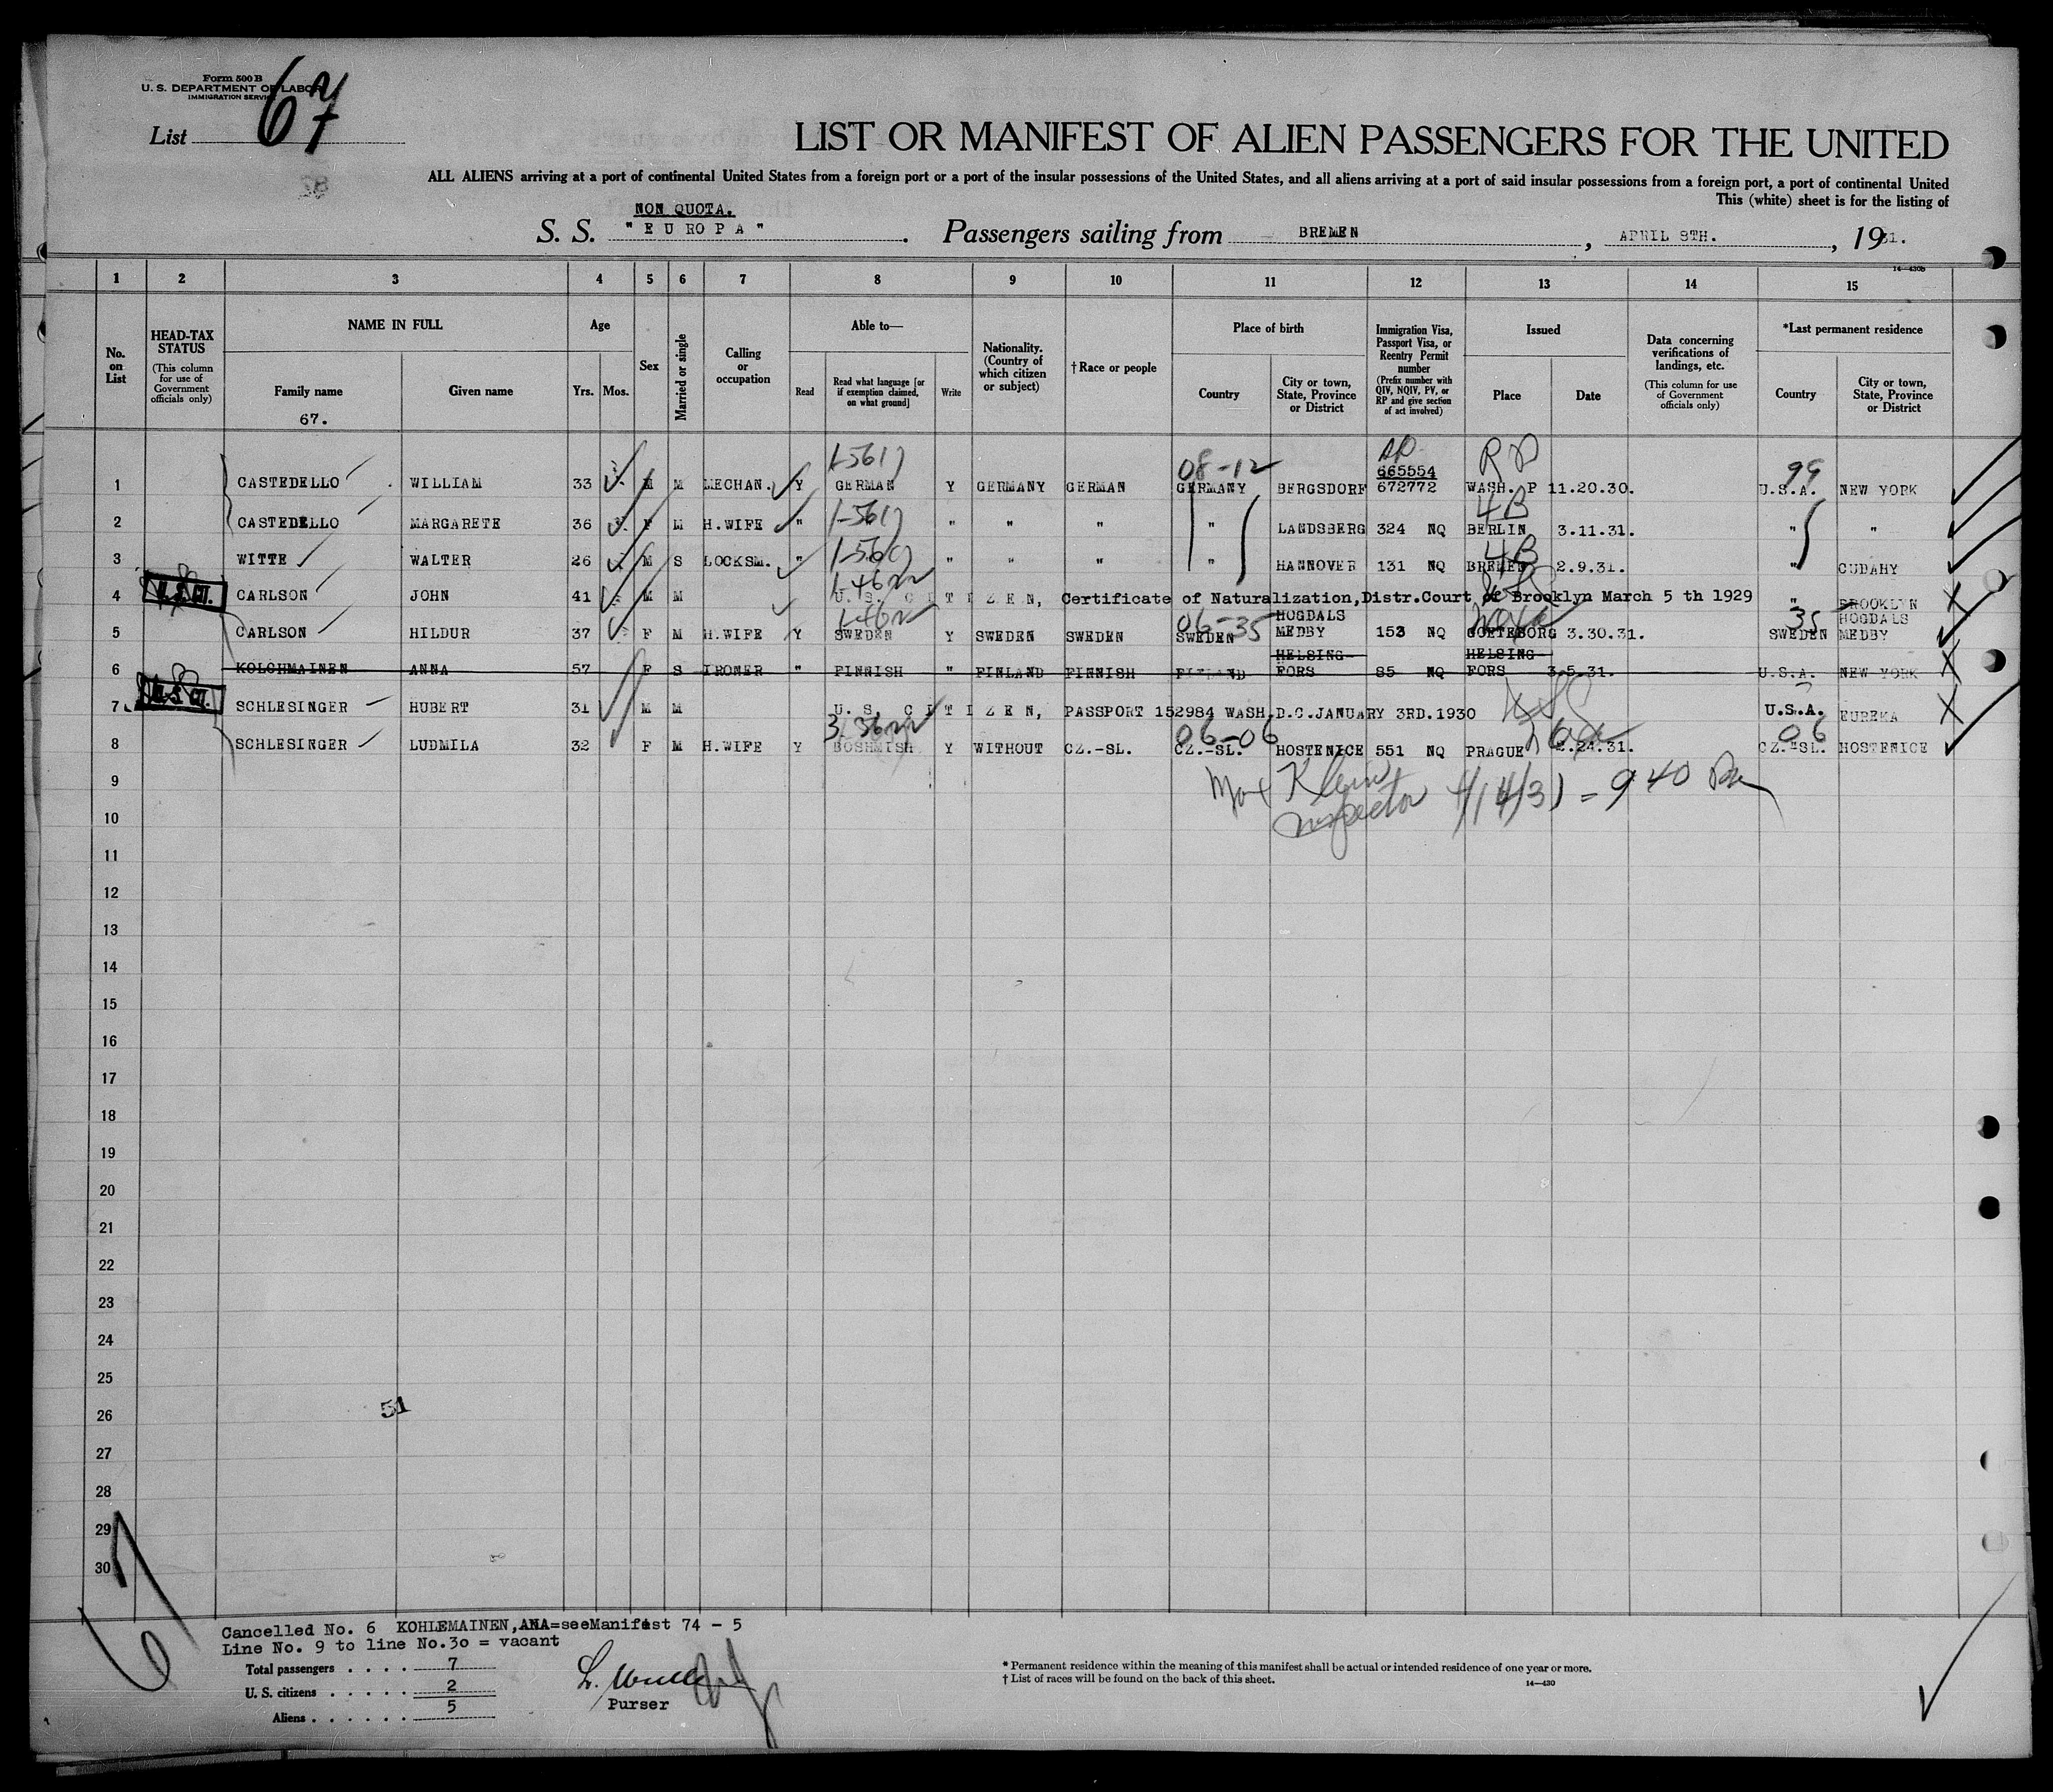 Form 500 B
U. S. DEPARTMENT OF LABOR
IMMIGRATION SERVICE
List 67
LIST OR MANIFEST OF ALIEN PASSENGERS FOR THE UNITED
ALL ALIENS arriving at a port of continental United States from a foreign port or a port of the insular possessions of the United States, and all aliens arriving at a port of said insular possessions from a foreign port, a port of continental United
This (white) sheet is for the listing of
NON QUOTA.
S. S. "EUROPA". Passengers sailing from BREMEN, APRIL 8TH., 1931.
14-430b
1 2 3 4 5 6 7 8 9 10 11 12 13 14 15
No. on List
HEAD-TAX STATUS
(This column for use of Government officials only)
NAME IN FULL
Family name
67.
Given name
Age
Yrs. Mos.
Sex
Married or single
Calling or occupation
Able to—
Read
Read what language [or if exemption claimed, on what ground]
Write
Nationality. (Country of which citizen or subject)
† Race or people
Place of birth
Country
City or town, State, Province or District
Immigration Visa, Passport Visa, or Reentry Permit number
(Prefix number with QIV, NQIV, PV, or RP and give section of act involved)
Issued
Place
Date
Data concerning verifications of landings, etc.
(This column for use of Government officials only)
*Last permanent residence
Country
City or town, State, Province or District
08-12 RP 99
665554
1 CASTEDELLO WILLIAM 33 M M MECHAN. Y GERMAN Y GERMANY GERMAN GERMANY BERGSDORF 672772 WASH. P 11.20.30. U.S.A. NEW YORK
4B
2 CASTEDELLO MARGARETE 36 F M H.WIFE " " " " " LANDSBERG 324 NQ BERLIN 3.11.31. " "
4B
3 WITTE WALTER 26 M S LOCKSM. " " " " " HANNOVER 131 NQ BREMEN 2.9.31. " CUDAHY
U.S. CIT.
4 CARLSON JOHN 41 M M U.S. CITIZEN, Certificate of Naturalization,Distr.Court of Brooklyn March 5 th 1929 " BROOKLYN
06-35 HOGDALS 35 HOGDALS
5 CARLSON HILDUR 37 F M H.WIFE Y SWEDEN Y SWEDEN SWEDEN SWEDEN MEDBY 153 NQ GOETEBORG 3.30.31. SWEDEN MEDBY
HELSING- HELSING-
6 KOLCHMAINEN ANNA 57 F S IRONER " FINNISH " FINLAND FINNISH FINLAND FORS 85 NQ FORS 3.5.31. U.S.A. NEW YORK
U.S. CIT.
7 SCHLESINGER HUBERT 31 M M U.S. CITIZEN, PASSPORT 152984 WASH.D.C.JANUARY 3RD.1930 U.S.A. EUREKA
06-06 06
8 SCHLESINGER LUDMILA 32 F M H.WIFE Y BOEHMISH Y WITHOUT CZ.-SL. CZ.-SL. HOSTENICE 551 NQ PRAGUE 2.24.31. CZ.-SL. HOSTENICE
9
Max Klein
Inspector 4/14/31 = 9 40 Pm
10
11
12
13
14
15
16
17
18
19
20
21
22
23
24
25
26
51
27
28
29
30
67
Cancelled No. 6 KOHLEMAINEN,ANA=seeManifest 74 - 5
Line No. 9 to line No.30 = vacant
Total passengers . . . . 7
U. S. citizens . . . . . 2
Aliens . . . . . . 5
Purser
* Permanent residence within the meaning of this manifest shall be actual or intended residence of one year or more.
† List of races will be found on the back of this sheet.
14-430